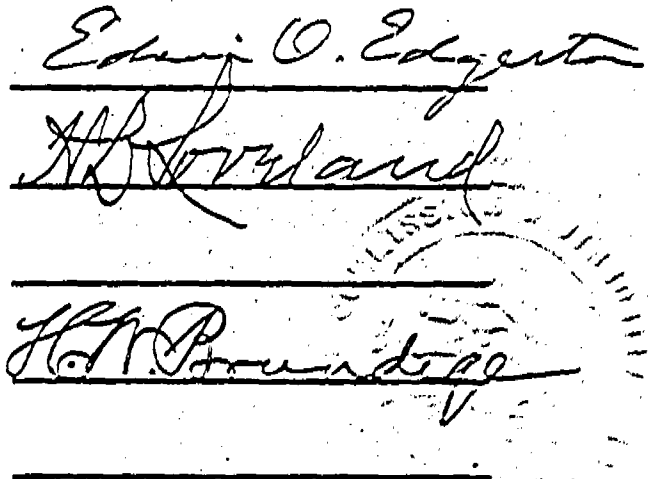 Edwin O. Edgerton
H. D. Loveland
H. W. Brundige